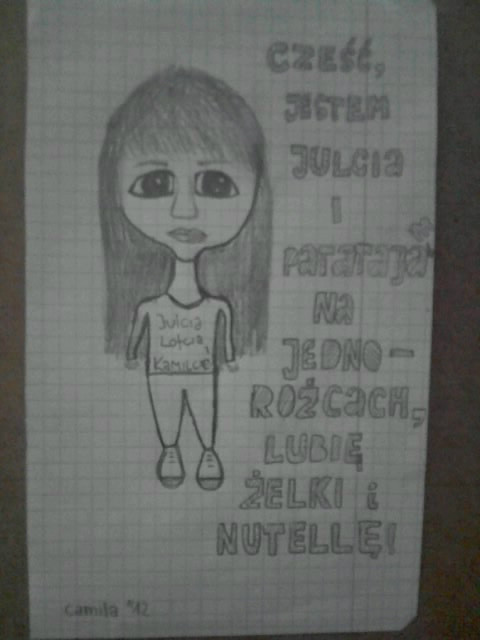 CZEŚĆ,
JESTEM
JULCIA
I
PATATAJA
NA
JEDNO-
ROŻCACH,
LUBIĘ
ŻELKI i
NUTELLĘ!
Julcia
Lofcia
Kamilcię
camila '12